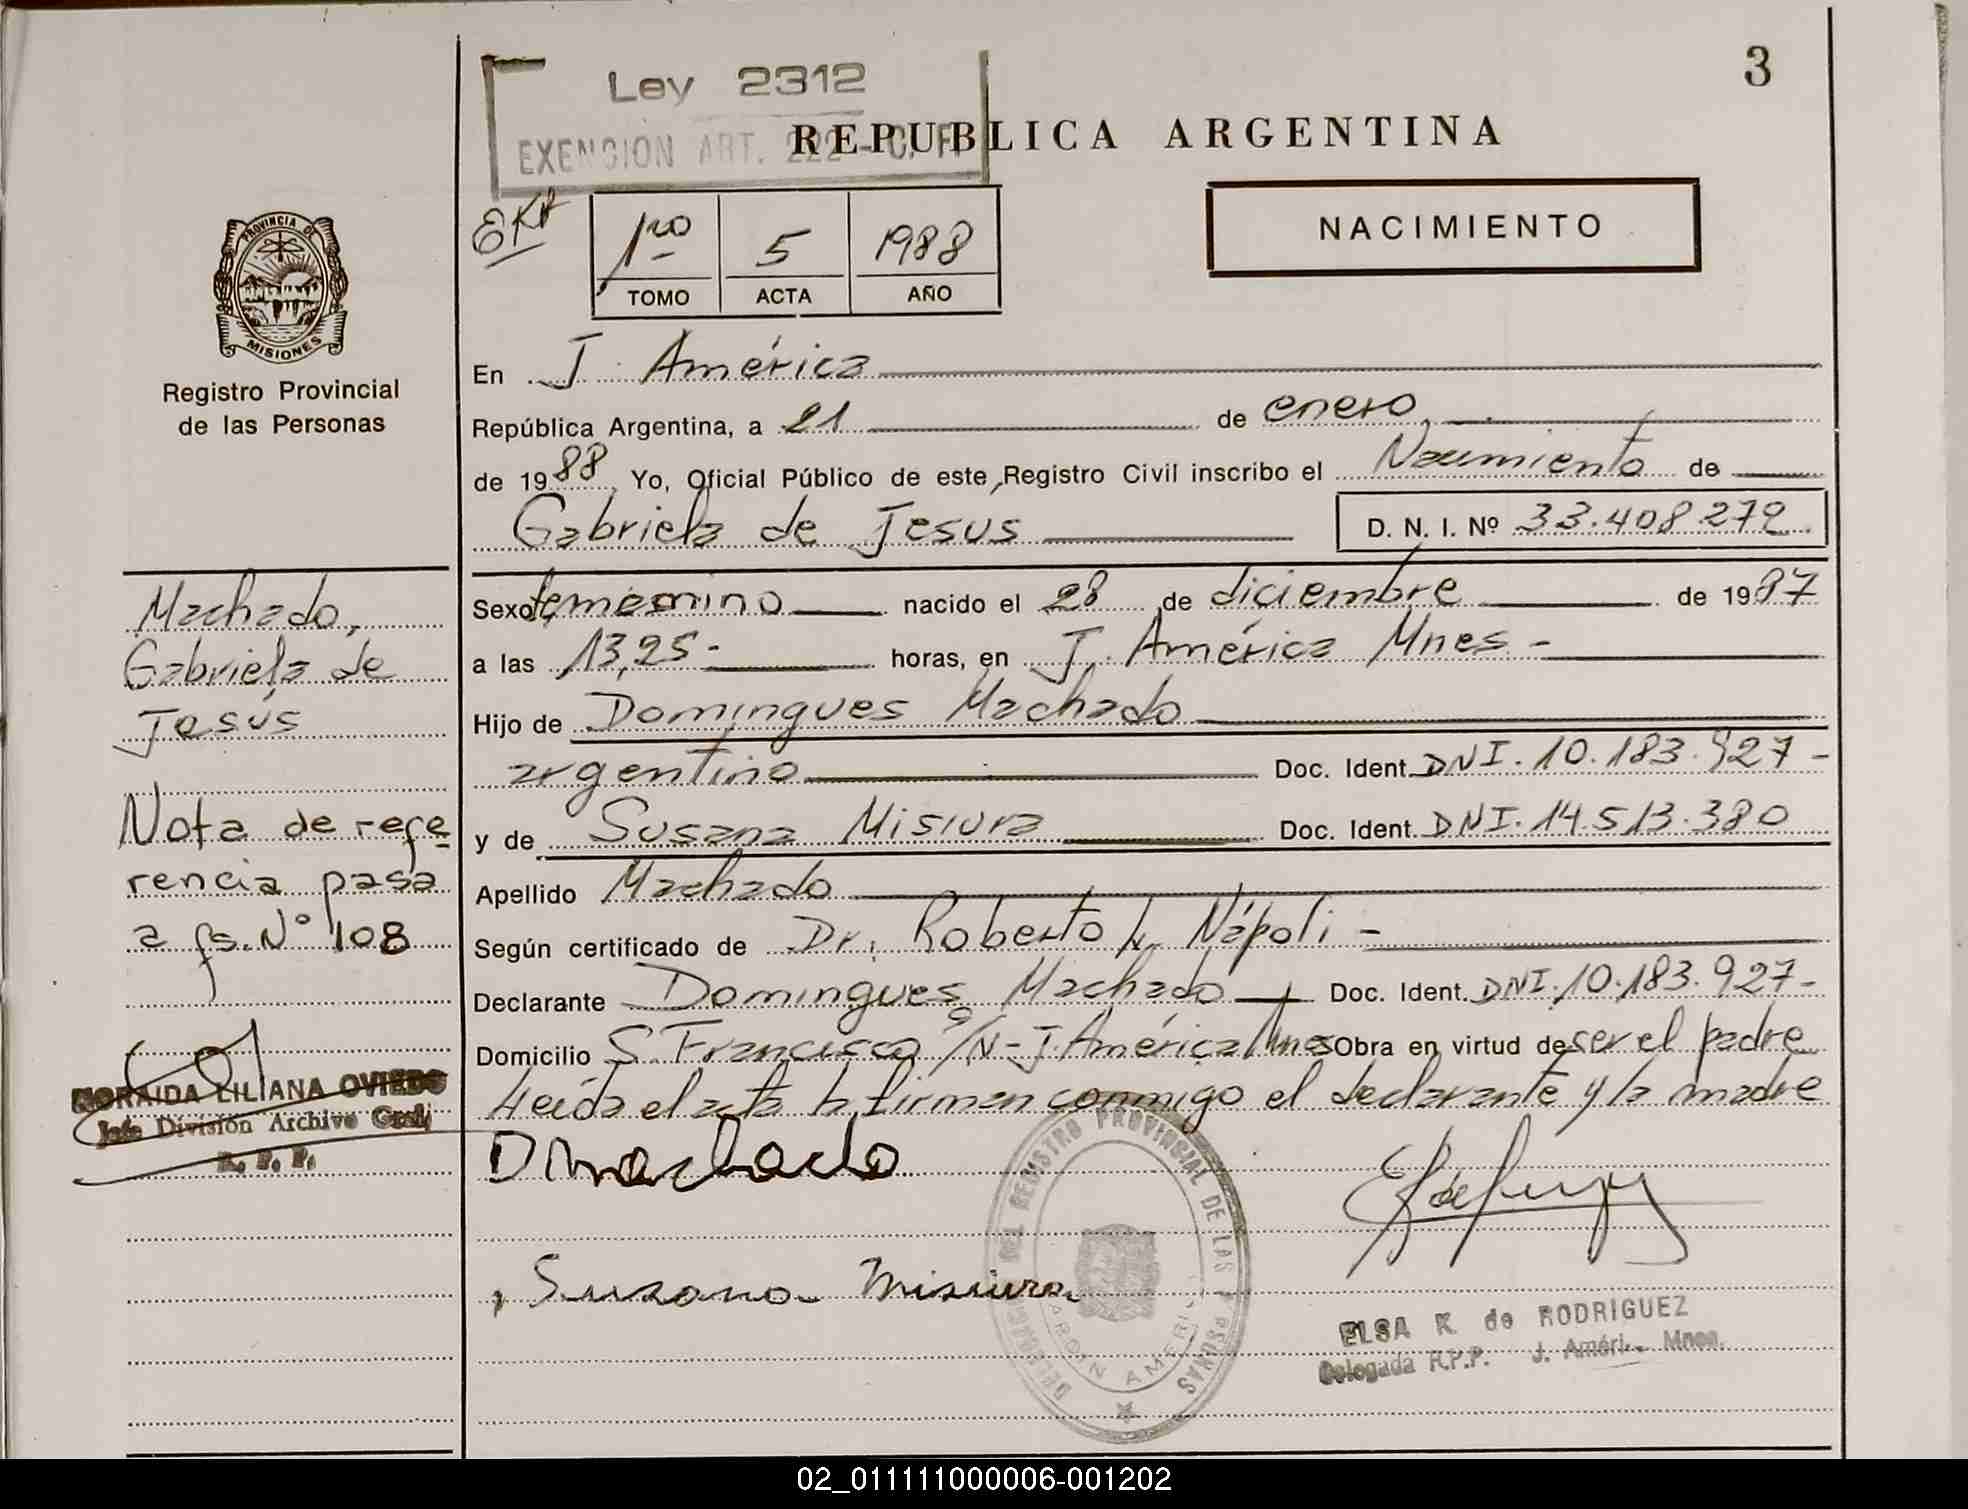 3
Ley 2312
EXENCION ART. 222 - C. F.
REPUBLICA ARGENTINA
1ro 5 1988
TOMO ACTA AÑO
NACIMIENTO
PROVINCIA DE
MISIONES
Registro Provincial
de las Personas
En J. América
República Argentina, a 21 de enero
de 1988 Yo, Oficial Público de este Registro Civil inscribo el Nacimiento de
Gabriela de Jesus D. N. I. Nº 33.408.279
Sexo femenino nacido el 28 de diciembre de 1987
a las 13,25- horas, en J. América Mnes -
Hijo de Domingues Machado
argentino Doc. Ident. DNI. 10.183.927-
y de Susana Misiura Doc. Ident. DNI. 14.513.380
Apellido Machado
Según certificado de Dr. Roberto L. Nápoli -
Declarante Domingues Machado Doc. Ident. DNI. 10.183.927-
Domicilio S. Francisco S/N - J. América Mnes Obra en virtud de ser el padre
Leída el acta la firman conmigo el declarante y la madre
D Machado
Susana Misiura
DEL REGISTRO PROVINCIAL DE LAS PERSONAS
ELSA K de RODRIGUEZ
Delegada R.P.P. J. Améri.. Mnes.
Machado,
Gabriela de
Jesús
Nota de refe
rencia pasa
a fs. Nº 108
NORAIDA LILIANA OVIEDO
Jefe División Archivo Gral.
R. P. P.
02_011111000006-001202